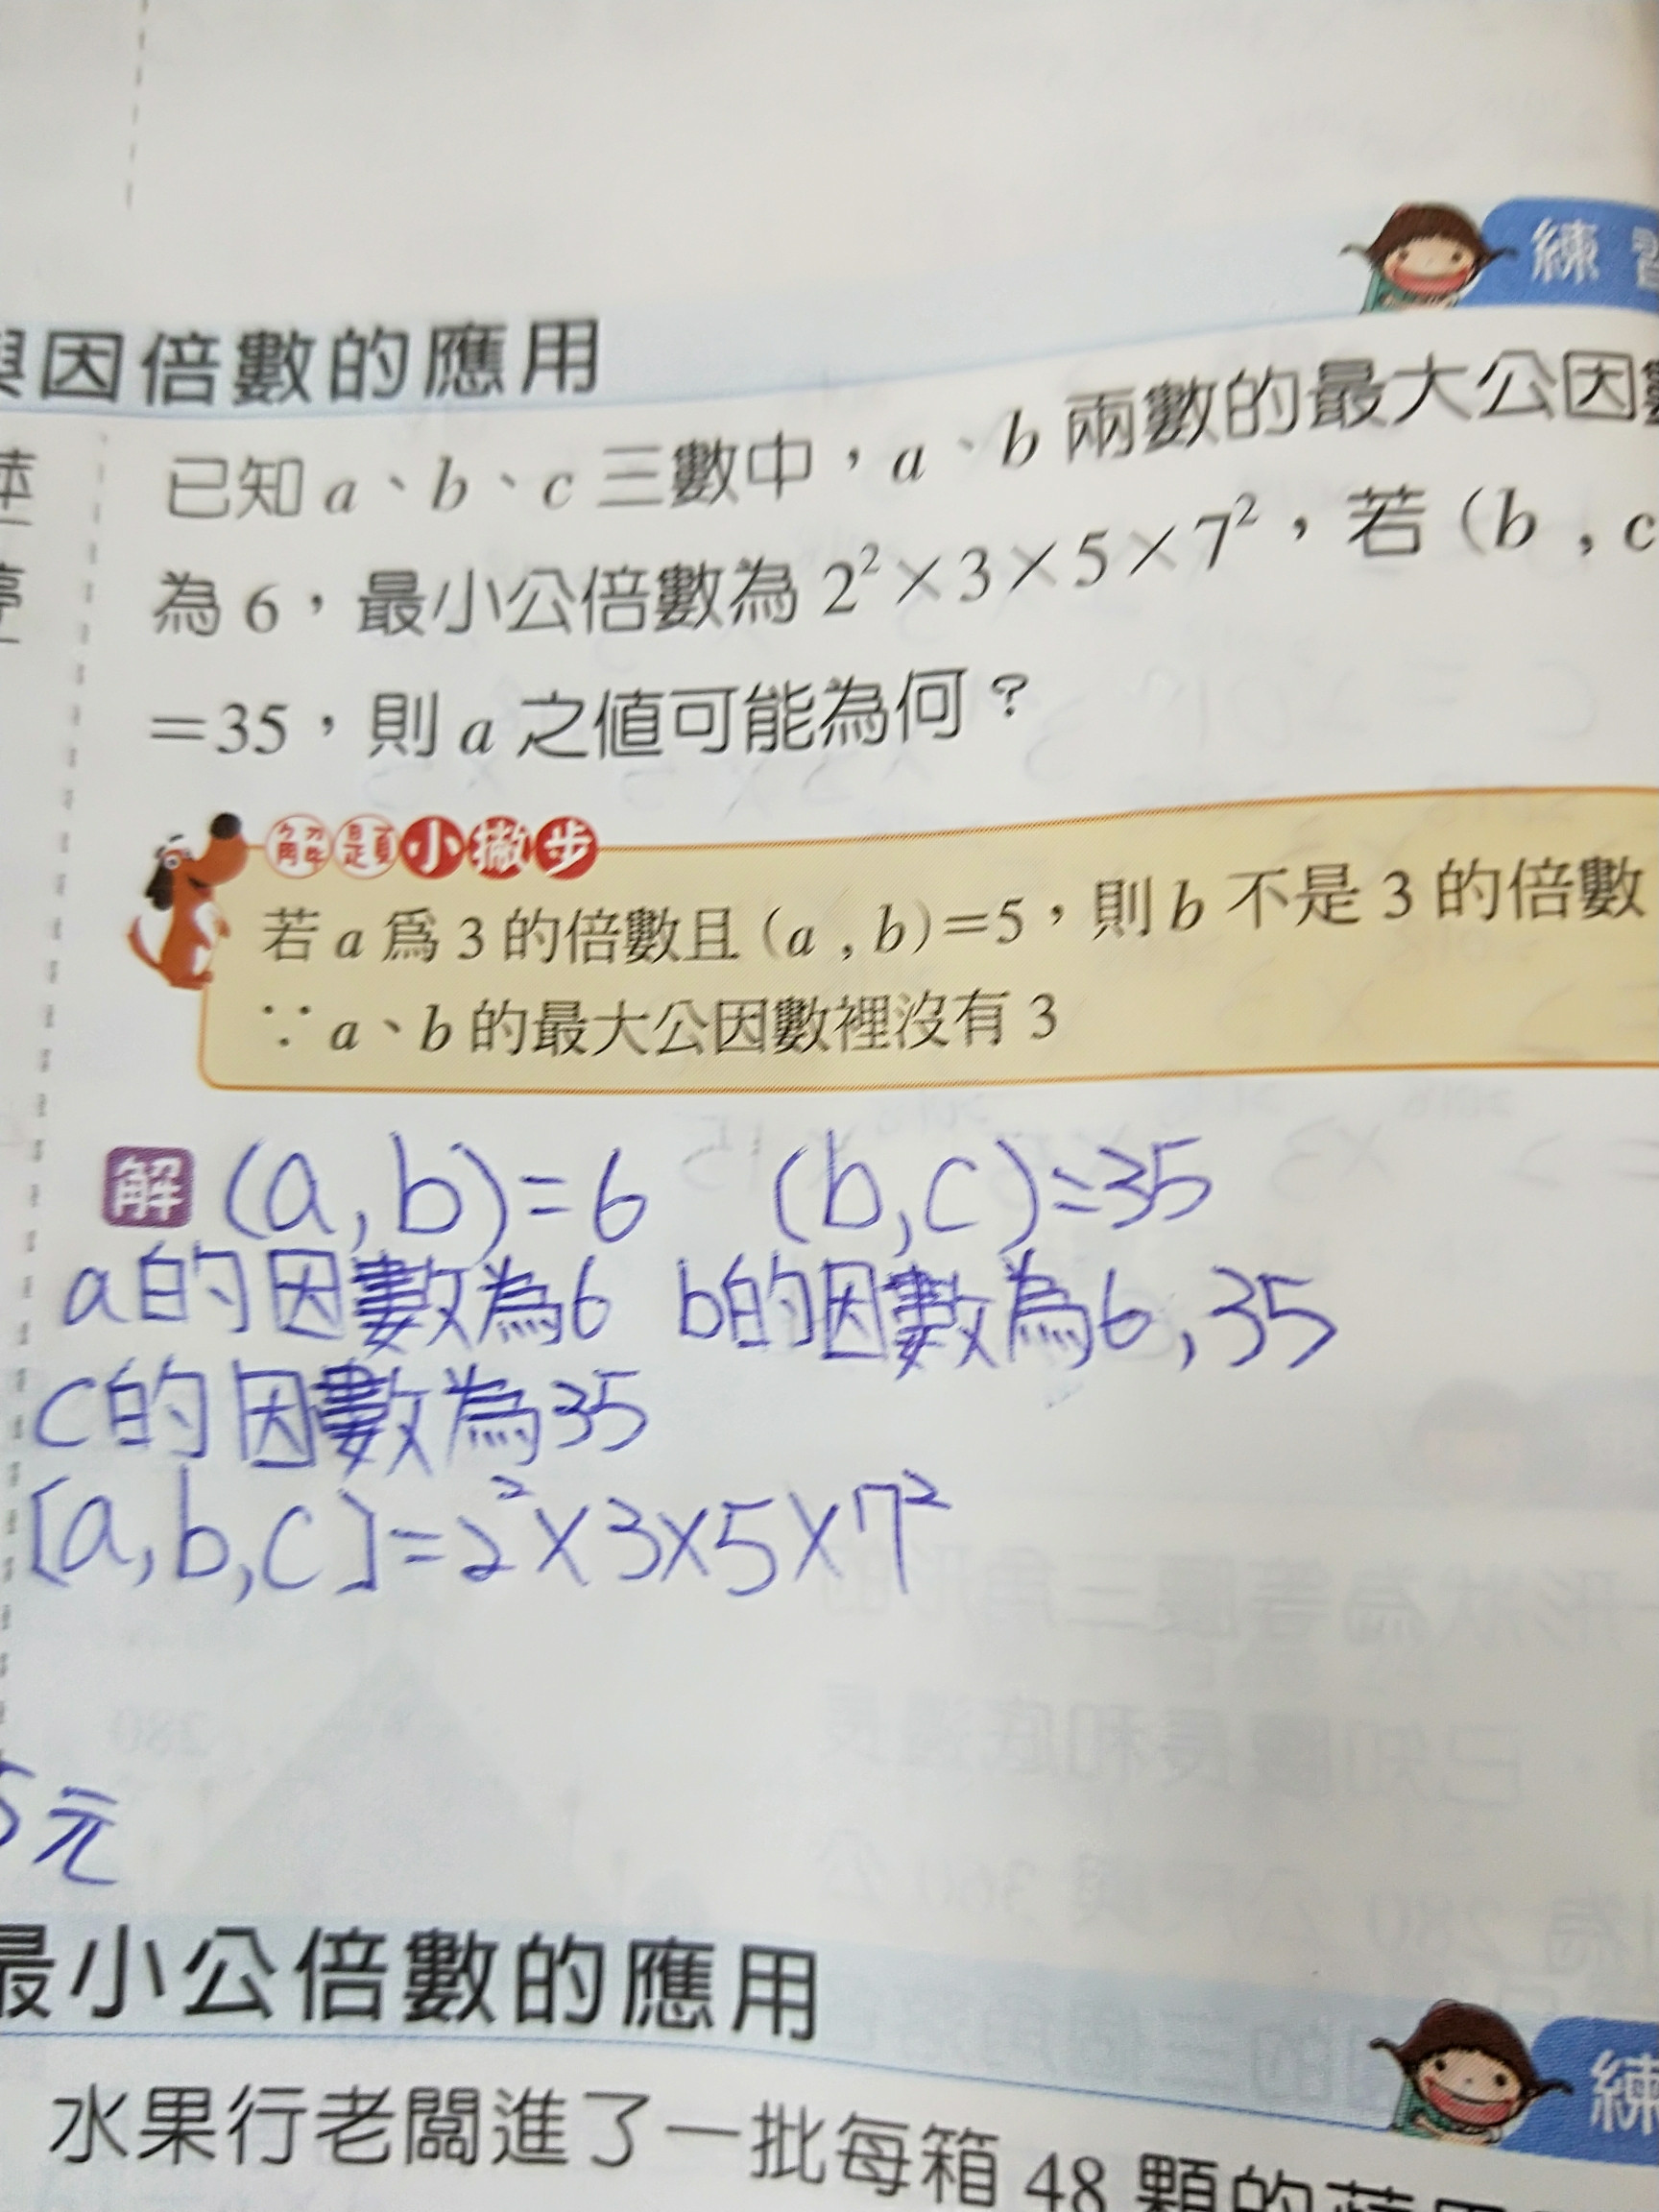 練習
與因倍數的應用
已知 a、b、c 三數中，a、b 兩數的最大公因數
為 6，最小公倍數為 2²×3×5×7²，若 (b , c
=35，則 a 之值可能為何？
解題小撇步
若 a 為 3 的倍數且 (a , b)=5，則 b 不是 3 的倍數
∵ a、b 的最大公因數裡沒有 3
解 (a,b)=6 (b,c)=35
a的因數為6 b的因數為6,35
c的因數為35
[a,b,c]=2²×3×5×7²
5元
最小公倍數的應用
練
水果行老闆進了一批每箱 48 顆的蘋果